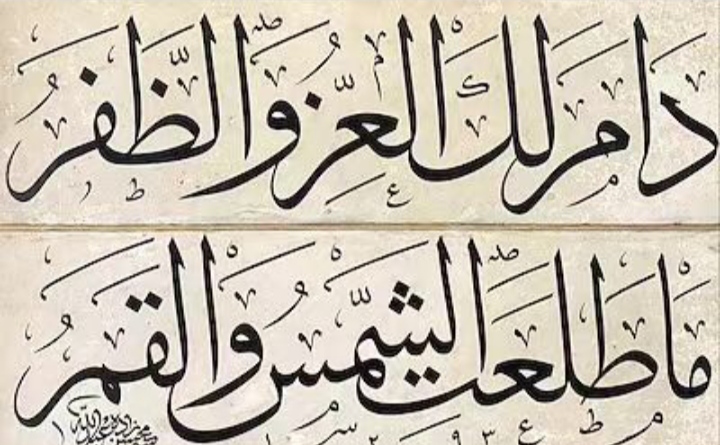 دَامَ لَكَ الْعِزُّ وَالظَّفَرُ
مَا طَلَعَتِ الشَّمْسُ وَالْقَمَرُ